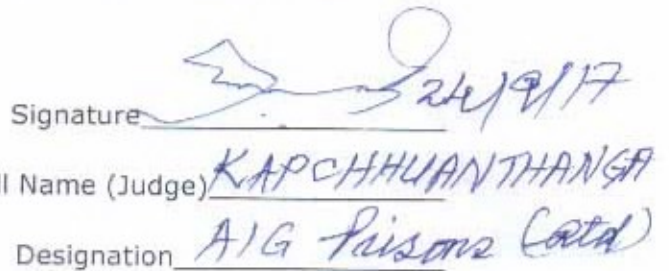 Signature 24/9/17
ll Name (Judge) KAPCHHUANTHANGA
Designation AIG Prisons (Retd)